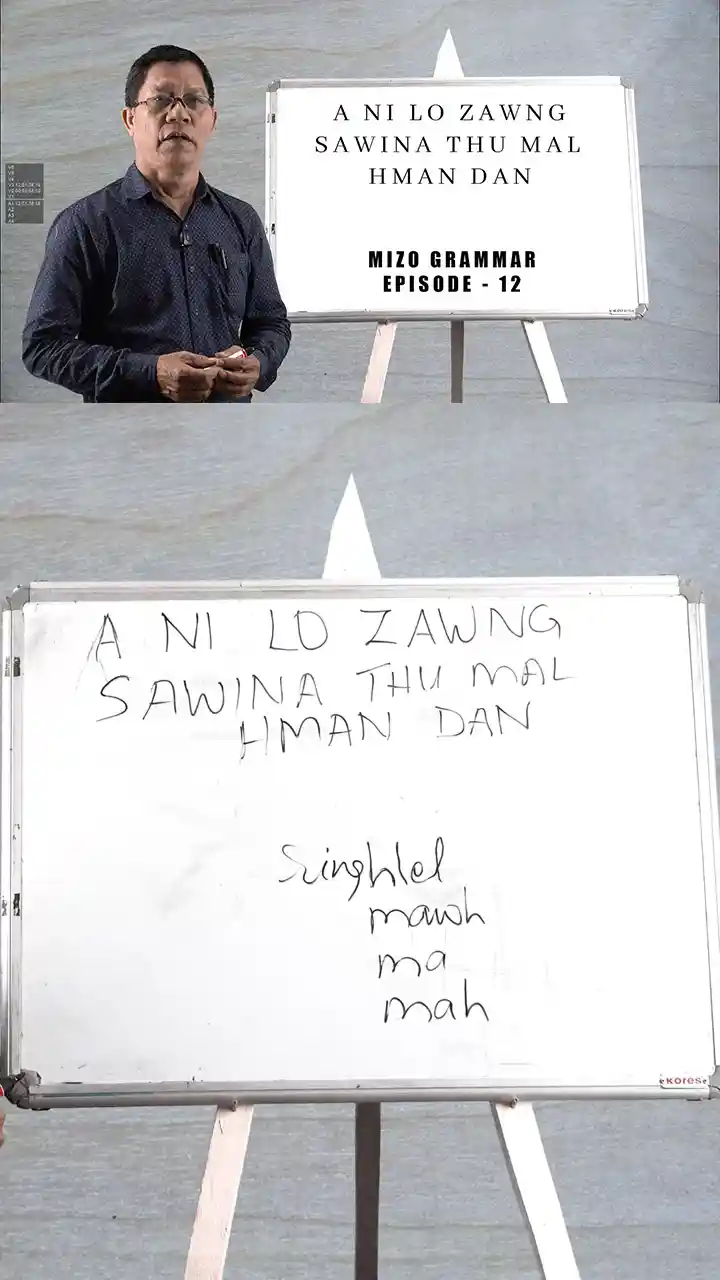 A NI LO ZAWNG
SAWINA THU MAL
HMAN DAN
MIZO GRAMMAR
EPISODE - 12
A NI LO ZAWNG
SAWINA THU MAL
HMAN DAN
mawh
ma
mah
Kores